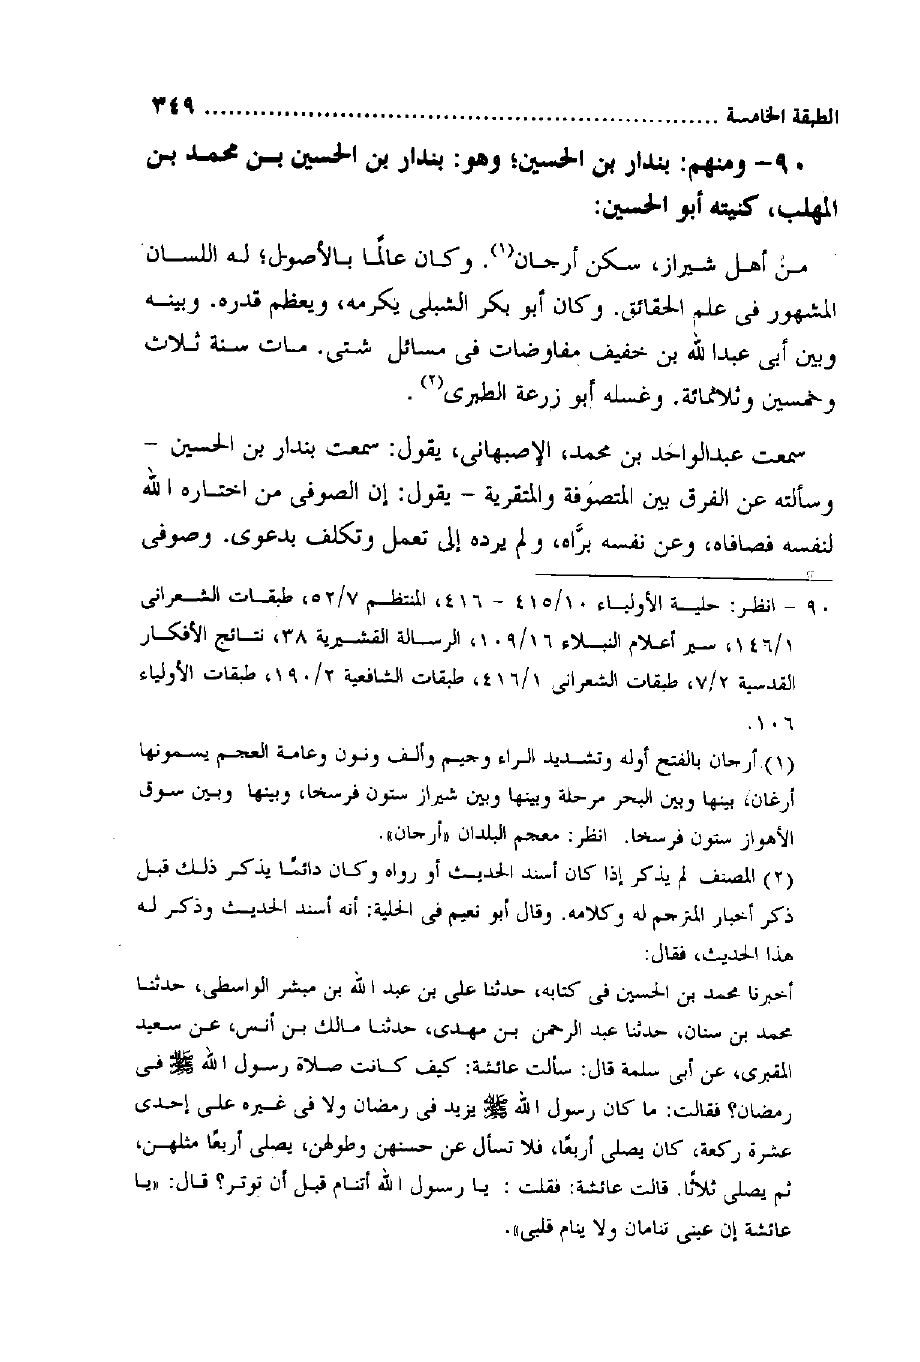 الطبقة الخامسة ................................................................ ٣٤٩
٩٠– ومنهم: بندار بن الحسين؛ وهو: بندار بن الحسين بن محمد بن
المهلب، كنيته أبو الحسين:
من أهل شيراز، سكن أرجان(١). وكان عالمًا بالأصول؛ له اللسان
المشهور فى علم الحقائق. وكان أبو بكر الشبلى يكرمه، ويعظم قدره. وبينه
وبين أبى عبدا لله بن خفيف مفاوضات فى مسائل شتى. مات سنة ثلاث
وخمسين وثلاثمائة. وغسله أبو زرعة الطبرى(٢).
سمعت عبدالواحد بن محمد، الإصبهانى، يقول: سمعت بندار بن الحسين –
وسألته عن الفرق بين المتصوّفة والمتقرية – يقول: إن الصوفى من اختاره الله
لنفسه فصافاه، وعن نفسه برَّاه، ولم يرده إلى تعمل وتكلف بدعوى. وصوفى
٩٠ – انظر: حلية الأولياء ٤١٥/١٠ – ٤١٦، المنتظم ٥٢/٧، طبقات الشعرانى
١٤٦/١، سير أعلام النبلاء ١٠٩/١٦، الرسالة القشيرية ٣٨، نتائج الأفكار
القدسية ٧/٢، طبقات الشعرانى ٤١٦/١، طبقات الشافعية ١٩٠/٢، طبقات الأولياء
١٠٦.
(١) أرجان بالفتح أوله وتشديد الراء وجيم وألف ونون وعامة العجم يسمونها
أرغان، بينها وبين البحر مرحلة وبينها وبين شيراز ستون فرسخا، وبينها وبين سوق
الأهواز ستون فرسخا. انظر: معجم البلدان «أرجان».
(٢) المصنف لم يذكر إذا كان أسند الحديث أو رواه وكان دائمًا يذكر ذلك قبل
ذكر أخبار المترجم له وكلامه. وقال أبو نعيم فى الحلية: أنه أسند الحديث وذكر له
هذا الحديث، فقال:
أخبرنا محمد بن الحسين فى كتابه، حدثنا على بن عبد الله بن مبشر الواسطى، حدثنا
محمد بن سنان، حدثنا عبد الرحمن بن مهدى، حدثنا مالك بن أنس، عن سعيد
المقبرى، عن أبى سلمة قال: سألت عائشة: كيف كانت صلاة رسول الله ﷺ فى
رمضان؟ فقالت: ما كان رسول الله ﷺ يزيد فى رمضان ولا فى غيره على إحدى
عشرة ركعة، كان يصلى أربعًا، فلا تسأل عن حسنهن وطولهن، يصلى أربعًا مثلهن،
ثم يصلى ثلاثًا. قالت عائشة: فقلت : يا رسول الله أتنام قبل أن توتر؟ قال: «يا
عائشة إن عينى تنامان ولا ينام قلبى».